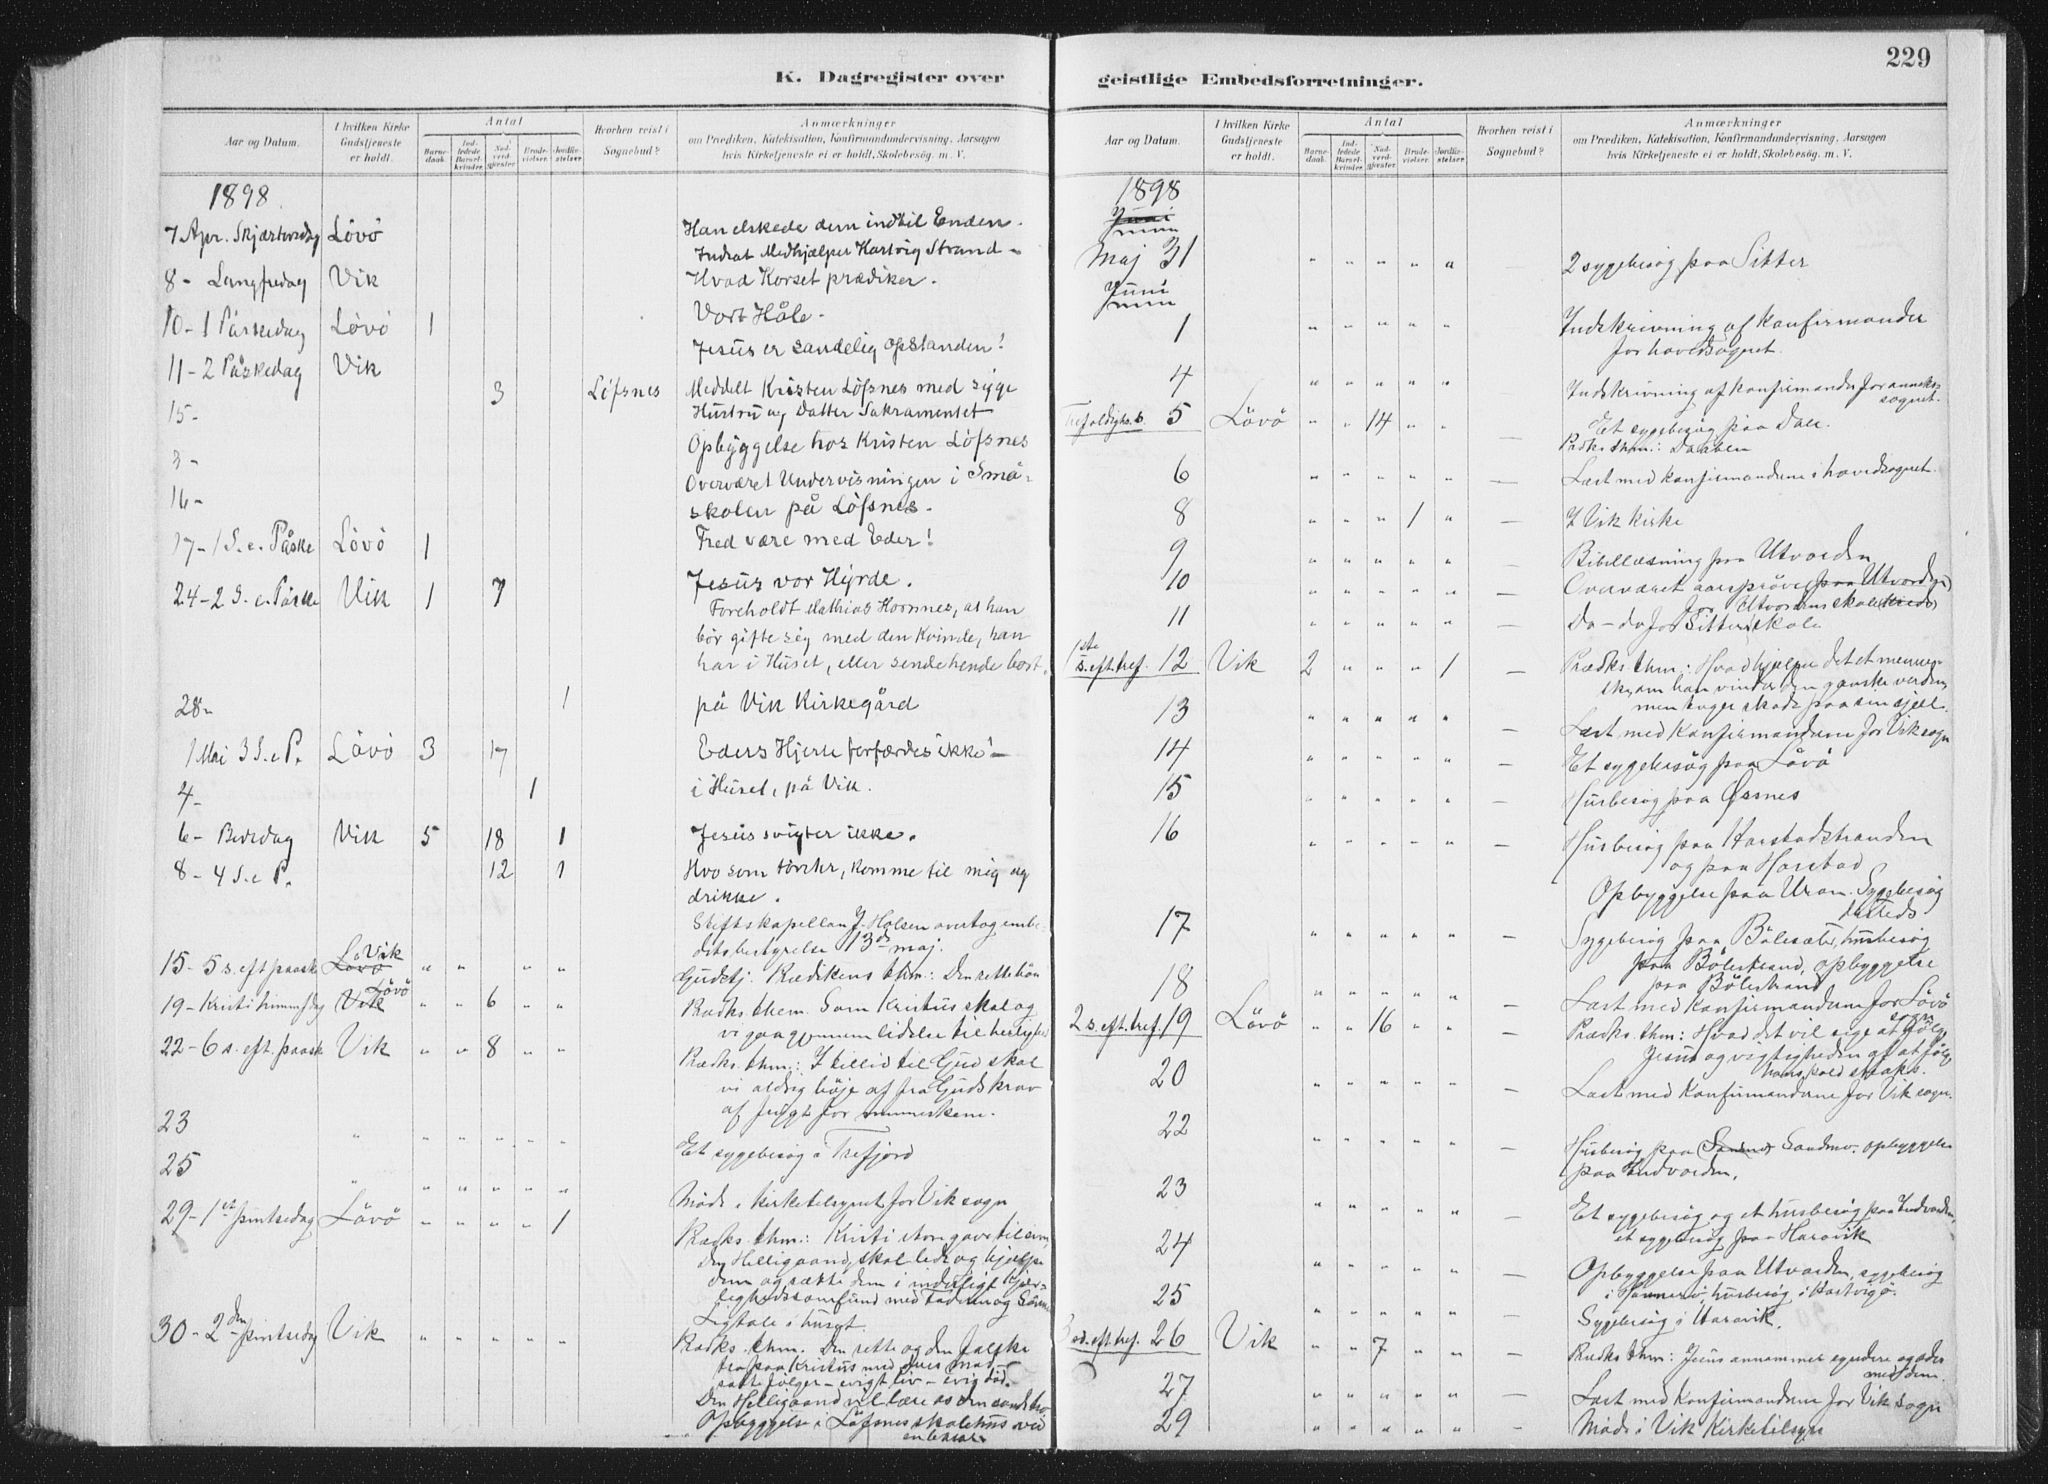 K. Dagregister over
Aar og Datum.
I hvilken Kirke Gudstjeneste er holdt.
Antal
Barnedaab.
Indledede Barselkvinder.
Nadverdgjester.
Brudevielser.
Jordfæstelser.
Hvorhen reist i Sognebud?
Anmærkninger
om Prædiken, Katekisation, Konfirmandundervisning, Aarsagen
hvis Kirketjeneste ei er holdt, Skolebesøg. m. V.
1898.
7 Apr. Skjærtorsdag Lövö Han elskede dem indtil Enden.
Indsat Medhjælper Hartvig Strand -
8 - Langfredag Vik Hvad Korset prædiker.
10 - 1 Påskedag Lövö 1 Vort Håb.
Jesus er sandelig opstanden!
11 - 2 Påskedag Vik
15 - 3 Löfsnes Meddelt Kristen Löfsnes med syge
Hustru og Datter Sakramentet
3 - Opbyggelse hos Kristen Löfsnes
16 - Overværet Undervisningen i Små-
skolen på Löfsnes.
17 - 1 S. e. Påske Lövö 1 Fred være med Eder!
24 - 2 S. e. Påske Vik 1 7 Jesus vor Hyrde.
Foreholdt Mathias Hornnes, at han
bör gifte sig med den Kvinde, han
har i Huset, eller sende hende bort.
28 - 1 på Vik Kirkegård
1 Mai 3 S. e P. Lövö 3 17 Eders Hjerte forfærdes ikke! -
4 - 1 i Huset, på Vik.
6 - Bededag Vik 5 18 1 Jesus svigter ikke.
8 - 4 S. e P. 12 1 Hvo som törster, komme til mig og
drikke.
Stiftskapellan J. Holsen overtog embe-
detsbestyrelse 13de maj.
15 - 5 s. eft paaske Lövö Vik " " " " Gudstj. Prædikens thm: Den rette bön
19 - Kristi himmf.dag Vik Lövö " " 6 " " Prædks them. Som Kristus skal og
vi gaa gjennem lidelse til herlighed
22 - 6 s. eft. paaske Vik " " 8 " " Prædks. thm.: I tillid til Gud skal
vi aldrig böje af fra Guds krav
af frygt for menneskene.
23 " " " " " " Et sygebesög i Trefjord
25 " " " " " " Möde i kirketilsynet for Vik sogn
29 - 1st pintsedag Lövö " " " " 1 Prædks. thm.: Kristi
Den Helligaand, skal lede og hjælpe
dem og sætte dem i inderligt kjær-
lighedssamfund med Faderen og Sönnen
Ligtale i huset.
30 - 2den pintsedag Vik " " " " " Prædks. thm. Den rette og den falske
tro paa Kristus med deres mod-
satte fölger - evigt liv - evig död.
Den Helligaand vil lære os den sande tro.
Opbyggelse i Löfsnes skolehus ved
en lekser
geistlige Embedsforretninger.
229
Aar og Datum.
I hvilken Kirke Gudstjeneste er holdt.
Antal
Barnedaab.
Indledede Barselkvinder.
Nadverdgjester.
Brudevielser.
Jordfæstelser.
Hvorhen reist i Sognebud?
Anmærkninger
om Prædiken, Katekisation, Konfirmandundervisning, Aarsagen
hvis Kirketjeneste ei er holdt, Skolebesøg. m. V.
1898
Juni
Maj 31 " " " " " 2 sygebesög paa Sitter
Juni
1 " " " " " Indskrivning af konfirmander
for hovedsognet.
4 " " " " " Indskrivning af konfirmander for anneks-
sognet.
Trefoldighs. s. 5 Lövö " " 14 " " — Et sygebesög paa Dale.
Prædks thm: Daaben
6 " " " " " — Læst med konfirmandene i hovedsognet.
8 " " " 1 " — I Vik kirke
9 " " " " " — Bibellæsning paa Utvorden
10 " " " " " Overværet aarspröve (paa Utvorden)
for Utvordens skole(kreds)
11 " " " " " Do - do for Sitter skole
1ste s. eft. tref. 12 Vik 2 " " " 1 — Prædks. thm.: Hvad hjælper det et menne-
ske, om han vinder den ganske verden
men tager skade paa sin sjæl.
13 " " " " " — Læst med Konfirmanderne for Vik sogn
14 " " " " " — Et sygebesög paa Lövö
15 " " " " " — Husbesög paa Øsnes
16 " " " " " — Husbesög paa Harstadstranden
og paa Harstad
Opbyggelse paa Uran. Sygebesög
dersteds
17 " " " " " — Sygebesög paa Bölesæter, husbesög
paa Bölestrand, opbyggelse
paa Bölestrand
18 " " " " " — Læst med konfirmanderne for Lövö
sogn
2 s. eft. tref. 19 Lövö " " 16 " " — Prædks. thm: Hvad det vil sige at fölge
Jesus og vigtigheden af at fölge
hans kald straks.
20 " " " " " — Læst med konfirmanderne for Vik sogn.
22 " " " " " — Husbesög paa (Sandmo) Sandmo. opbyggelse
paa Indvorden.
23 " " " " " — Et sygebesög og et husbesög paa Indvorden,
et sygebesög paa Haravik
24 " " " " " — Opbyggelse paa Utvorden, sygebesög
i Hommerö, husbesög i Hartvigö.
25 " " " " " — Sygebesög i Haravik.
3 s. eft. tref. 26 Vik " " 7 " " — Prædks thm: Jesus annammer syndere og æder
med dem.
27 " " " " " — Læst med konfirmanderne for Vik sogn
29 " " " " " — Möde i Vik Kirketilsyn